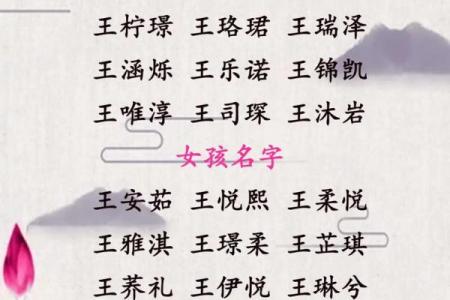 王柠璟 王珞珺 王瑞泽
王涵烁 王乐诺 王锦凯
王唯淳 王司琛 王沐岩
女孩名字
王安茹 王悦熙 王柔悦
王雅淇 王璟柔 王芷琪
王荞礼 王伊悦 王琳兮